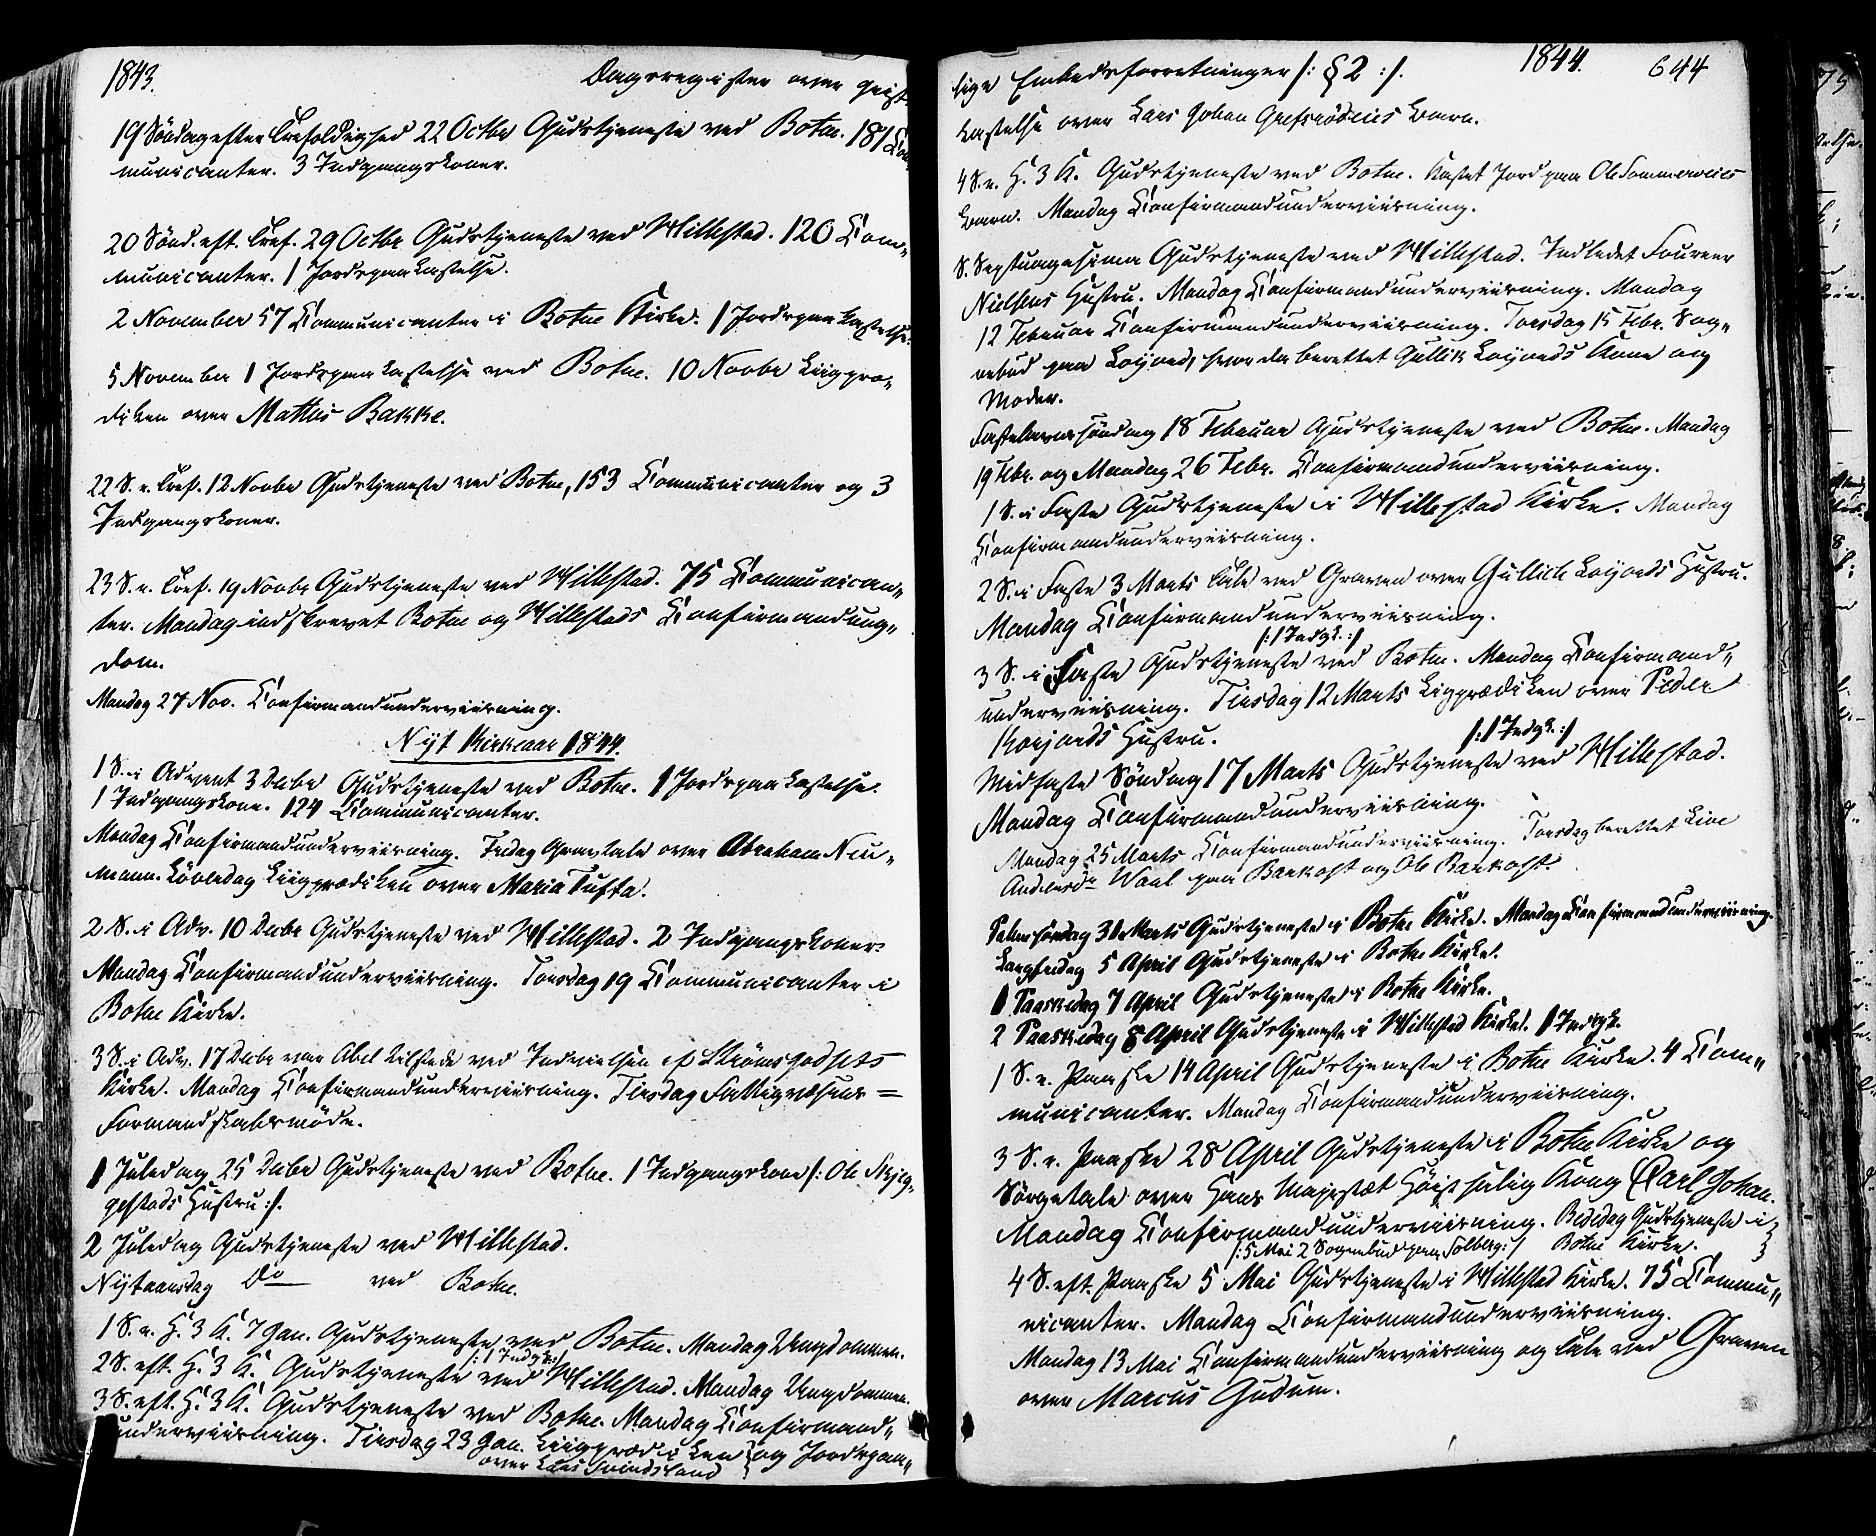 1843.
Dagsregister over geist
19 Söndag efter Trefoldighed 22 Octbr Gudstjeneste ved Botne. 181 Com
municanter. 3 Indgangskoner.
20 Sönd. eft. Tref. 29 Octbr Gudstjeneste ved Hillestad. 120 Com„
municanter. 1 Jordspaakastelse.
2 November 57 Communicanter i Botne Kirke. 1 Jordspaakastelse.
5 November 1 Jordspaakastelse ved Botne. 10 Novbr Liigpræ„
diken over Mathis Bakke.
22 S. e. Tref. 12 Novbr Gudstjeneste ved Botne, 153 Communicanter og 3
Indgangskoner.
23 S. e. Tref. 19 Novbr Gudstjeneste ved Hillestad. 75 Communican„
ter. Mandag indskrevet Botne og Hillestads Confirmandung„
dom.
Mandag 27 Nov. Confirmandunderviisning.
Nyt Kirkeaar 1844.
1 S. i Advent 3 Decbr Gudstjeneste ved Botne. 1 Jordspaakastelse.
1 Indgangskone. 124 Communicanter.
Mandag Confirmandunderviisning. Fredag Gravtale over Abraham Neu„
mann. Löverdag Liigprædiken over Maria Tufte.
2 S. i Adv. 10 Decbr Gudstjeneste ved Hillestad. 2 Indgangskoner.
Mandag Confirmandunderviisning. Torsdag 19 Communicanter i
Botne Kirke.
3 S. i Adv. 17 Decbr var Abel tilstede ved Indvielsen af Strömsgodsets
Kirke. Mandag Confirmandunderviisning. Tirsdag Fattigvæsens=
Formandskabsmöde.
1 Juledag 25 Decbr Gudstjeneste ved Botne. 1 Indgangskone /: Ole Skjeg„
gestads Hustru :/.
2 Juledag Gudstjeneste ved Hillestad.
Nytaarsdag Do ved Botne.
1 S. e. H. 3 K. 7 Jan. Gudstjeneste ved Botne. Mandag Ungdommen.
/: 1 Indgk :/
2 S. eft. H. 3 K. Gudstjeneste ved Hillestad. Mandag Ungdommen.
3 S. eft. H. 3 K. Gudstjeneste ved Botne. Mandag Confirmand„
underviisning. Tirsdag 23 Jan. Liigprædiken og Jordspaa„
over Lars
1844.
644
lige Embedsforretninger /: § 2 :/.
kastelse over Lars Johan Grefsrödeies Barn.
4 S. e. H. 3 K. Gudstjeneste ved Botne. Kastet Jord paa Ole Sommereies
Barn. Mandag Confirmandunderviisning.
S. Septuagesima Gudstjeneste ved Hillestad. Indledet Foureer
Nielsens Hustru. Mandag Confirmandunderviisning. Mandag
12 Februar Confirmandunderviisning. Torsdag 15 Febr. Sog„
nebud paa Leijord, hvor da berettet Gullik Leijords Kone og
Moder.
Fastelavnssöndag 18 Februar Gudstjeneste ved Botne. Mandag
19 Febr. og Mandag 26 Febr. Confirmandunderviisning.
1 S. i Faste Gudstjeneste i Hillestad Kirke. Mandag
Confirmandunderviisning.
2 S. i Faste 3 Marts Tale ved Graven over Gullich Leijords Hustru.
Mandag Confirmandunderviisning.
/: 1 Indgk. :/
3 S. i Faste Gudstjeneste ved Botne. Mandag Confirmand„
underviisning. Tirsdag 12 Marts Liigprædiken over Peder
Korjords Hustru.
/: 1 Indgk. :/
Midfaste Söndag 17 Marts Gudstjeneste ved Hillestad.
Mandag Confirmandunderviisning.
Mandag 25 Marts Confirmandunderviisning. Torsdag berettet Live
Andersdr Waal paa Backost og Ole Backost.
Palmesöndag 31 Marts Gudstjeneste i Botne Kirke. Mandag Confirmandunderviisning.
Langfredag 5 April Gudstjeneste i Botne Kirke.
1 Paaskedag 7 April Gudstjeneste i Botne Kirke.
2 Paaskedag 8 April Gudstjeneste i Hillestad Kirke. 1 Indgk.
1 S. e. Paaske 14 April Gudstjeneste i Botne Kirke. 4 Com„
municanter. Mandag Confirmandunderviisning.
3 S. e. Paaske 28 April Gudstjeneste i Botne Kirke og
Sörgetale over Hans Majestæt Höist salig Kong Carl Johan.
Mandag Confirmandunderviisning. Bededag Gudstjeneste i
Botne Kirke.
/: 5 Mai 2 Sognebud paa Solberg :/
4 S. eft. Paaske 5 Mai Gudstjeneste i Hillestad Kirke. 75 Commu„
nicanter. Mandag Confirmandunderviisning.
Mandag 13 Mai Confirmandunderviisning og Tale ved Graven
over Marcus Gudum.